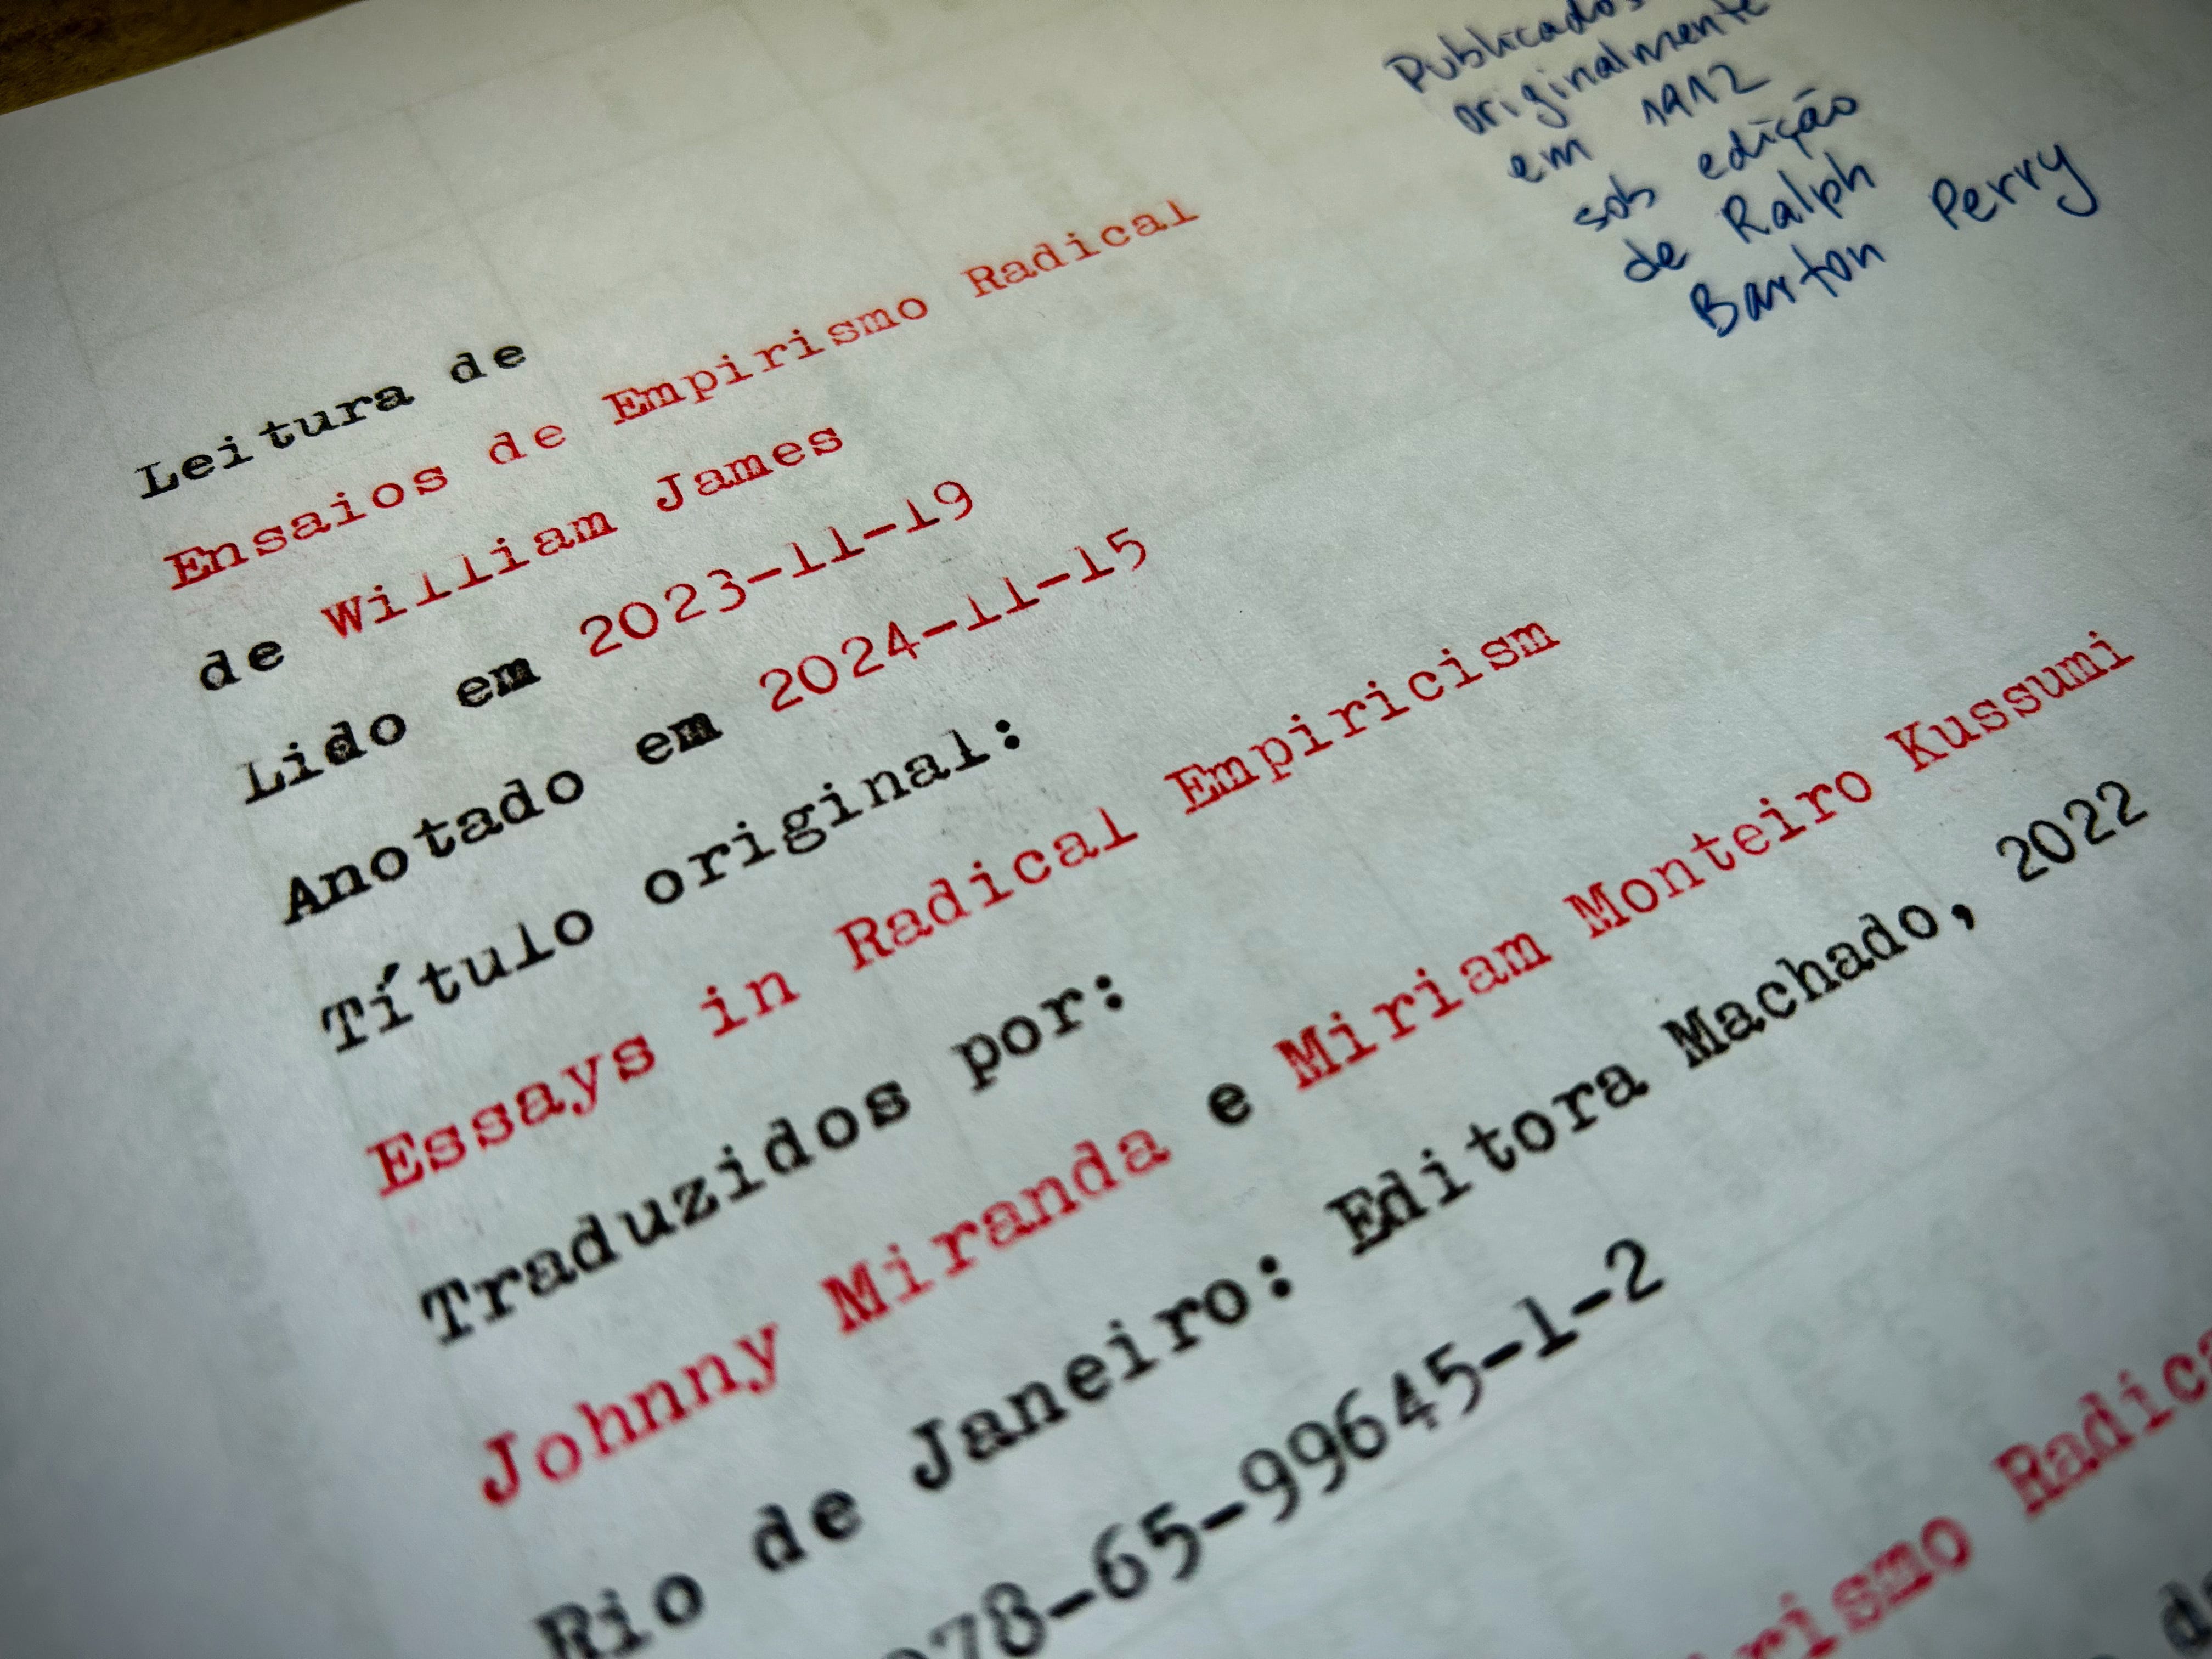 Publicados
originalmente
em 1912
sob edição
de Ralph
Barton Perry
Leitura de
Ensaios de Empirismo Radical
de William James
Lido em 2023-11-19
Anotado em 2024-11-15
Título original:
Essays in Radical Empiricism
Traduzidos por:
Johnny Miranda e Miriam Monteiro Kussumi
Rio de Janeiro: Editora Machado, 2022
978-65-99645-1-2